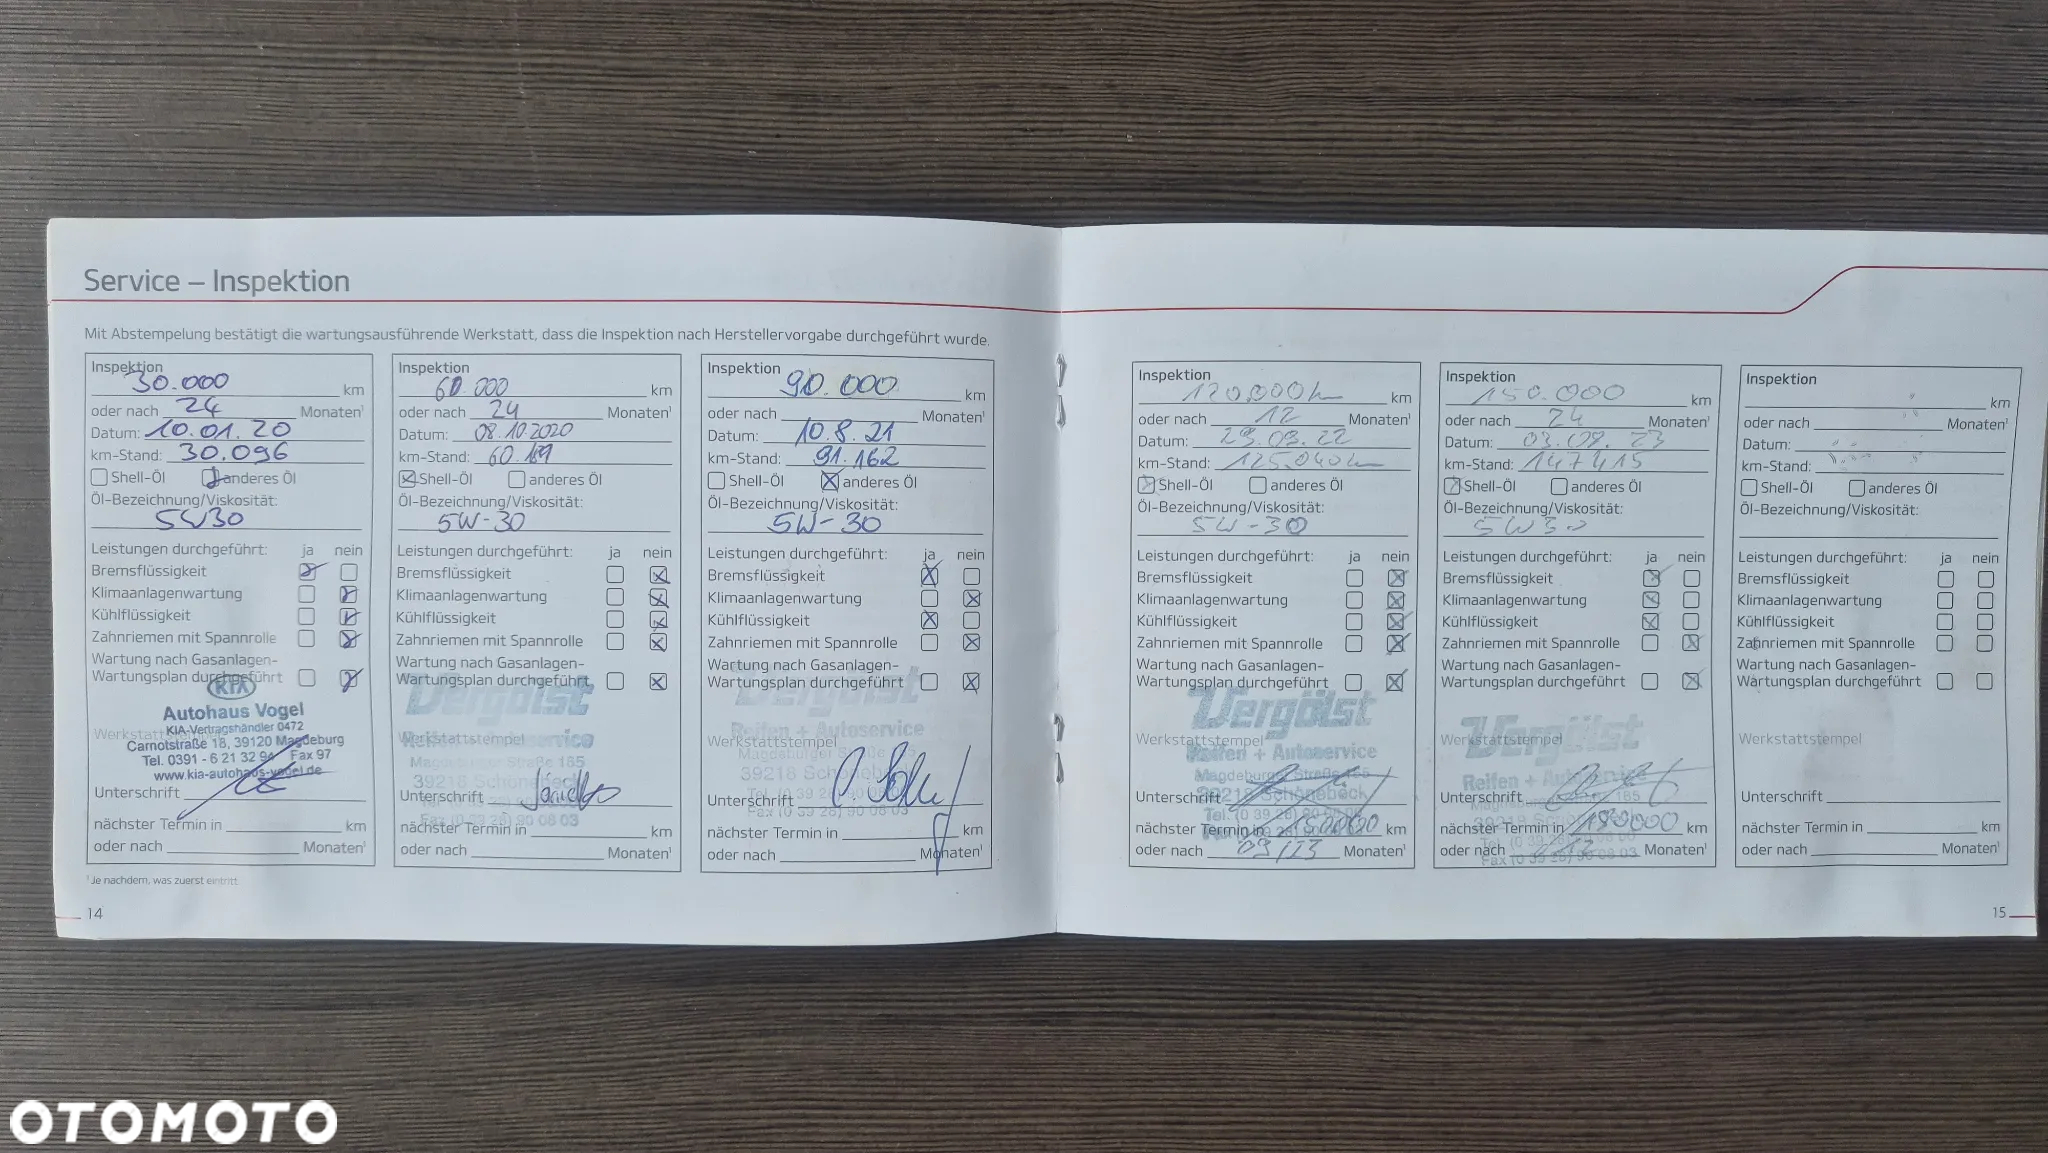 Service – Inspektion
Mit Abstempelung bestätigt die wartungsausführende Werkstatt, dass die Inspektion nach Herstellervorgabe durchgeführt wurde.
Inspektion
30.000 km
oder nach 24 Monaten¹
Datum: 10.01.20
km-Stand: 30.096
Shell-Öl anderes Öl
Öl-Bezeichnung/Viskosität:
5W30
Leistungen durchgeführt: ja nein
Bremsflüssigkeit
Klimaanlagenwartung
Kühlflüssigkeit
Zahnriemen mit Spannrolle
Wartung nach Gasanlagen-
Wartungsplan durchgeführt
KIA
Autohaus Vogel
KIA-Vertragshändler 0472
Werkstattstempel
Carnotstraße 18, 39120 Magdeburg
Tel. 0391 - 6 21 32 94 Fax 97
www.kia-autohaus-vogel.de
Unterschrift
nächster Termin in km
oder nach Monaten¹
¹ Je nachdem, was zuerst eintritt
14
Inspektion
60.000 km
oder nach 24 Monaten¹
Datum: 08.10.2020
km-Stand: 60.
Shell-Öl anderes Öl
Öl-Bezeichnung/Viskosität:
5W-30
Leistungen durchgeführt: ja nein
Bremsflüssigkeit
Klimaanlagenwartung
Kühlflüssigkeit
Zahnriemen mit Spannrolle
Wartung nach Gasanlagen-
Wartungsplan durchgeführt
Vergölst
Werkstattstempel
Magdeburger Straße 165
39218 Schönebeck
Unterschrift
Fax (0 39 28) 90 08 03
nächster Termin in km
oder nach Monaten¹
Inspektion
90.000 km
oder nach Monaten¹
Datum: 10.8.21
km-Stand: 91.162
Shell-Öl anderes Öl
Öl-Bezeichnung/Viskosität:
5W-30
Leistungen durchgeführt: ja nein
Bremsflüssigkeit
Klimaanlagenwartung
Kühlflüssigkeit
Zahnriemen mit Spannrolle
Wartung nach Gasanlagen-
Wartungsplan durchgeführt
Vergölst
Reifen + Autoservice
Werkstattstempel
Magdeburger Straße 165
39218 Schönebeck
Unterschrift
Fax (0 39 28) 90 08 03
nächster Termin in km
oder nach Monaten¹
Inspektion
120.000km km
oder nach 12 Monaten¹
Datum: 29.09.22
km-Stand: 125.040km
Shell-Öl anderes Öl
Öl-Bezeichnung/Viskosität:
5W-30
Leistungen durchgeführt: ja nein
Bremsflüssigkeit
Klimaanlagenwartung
Kühlflüssigkeit
Zahnriemen mit Spannrolle
Wartung nach Gasanlagen-
Wartungsplan durchgeführt
Vergölst
Werkstattstempel
Reifen + Autoservice
Magdeburger Straße 165
39218 Schönebeck
Unterschrift
nächster Termin in 150000 km
oder nach 09/23 Monaten¹
Inspektion
150.000 km
oder nach 24 Monaten¹
Datum: 03.08.23
km-Stand: 147415
Shell-Öl anderes Öl
Öl-Bezeichnung/Viskosität:
5W30
Leistungen durchgeführt: ja nein
Bremsflüssigkeit
Klimaanlagenwartung
Kühlflüssigkeit
Zahnriemen mit Spannrolle
Wartung nach Gasanlagen-
Wartungsplan durchgeführt
Vergölst
Werkstattstempel
Reifen + Autoservice
Unterschrift
39218 Schönebeck
nächster Termin in 180000 km
oder nach Monaten¹
Fax (0 39 28) 90 08 03
Inspektion
km
oder nach Monaten¹
Datum:
km-Stand:
Shell-Öl anderes Öl
Öl-Bezeichnung/Viskosität:
Leistungen durchgeführt: ja nein
Bremsflüssigkeit
Klimaanlagenwartung
Kühlflüssigkeit
Zahnriemen mit Spannrolle
Wartung nach Gasanlagen-
Wartungsplan durchgeführt
Werkstattstempel
Unterschrift
nächster Termin in km
oder nach Monaten¹
15
OTOMOTO